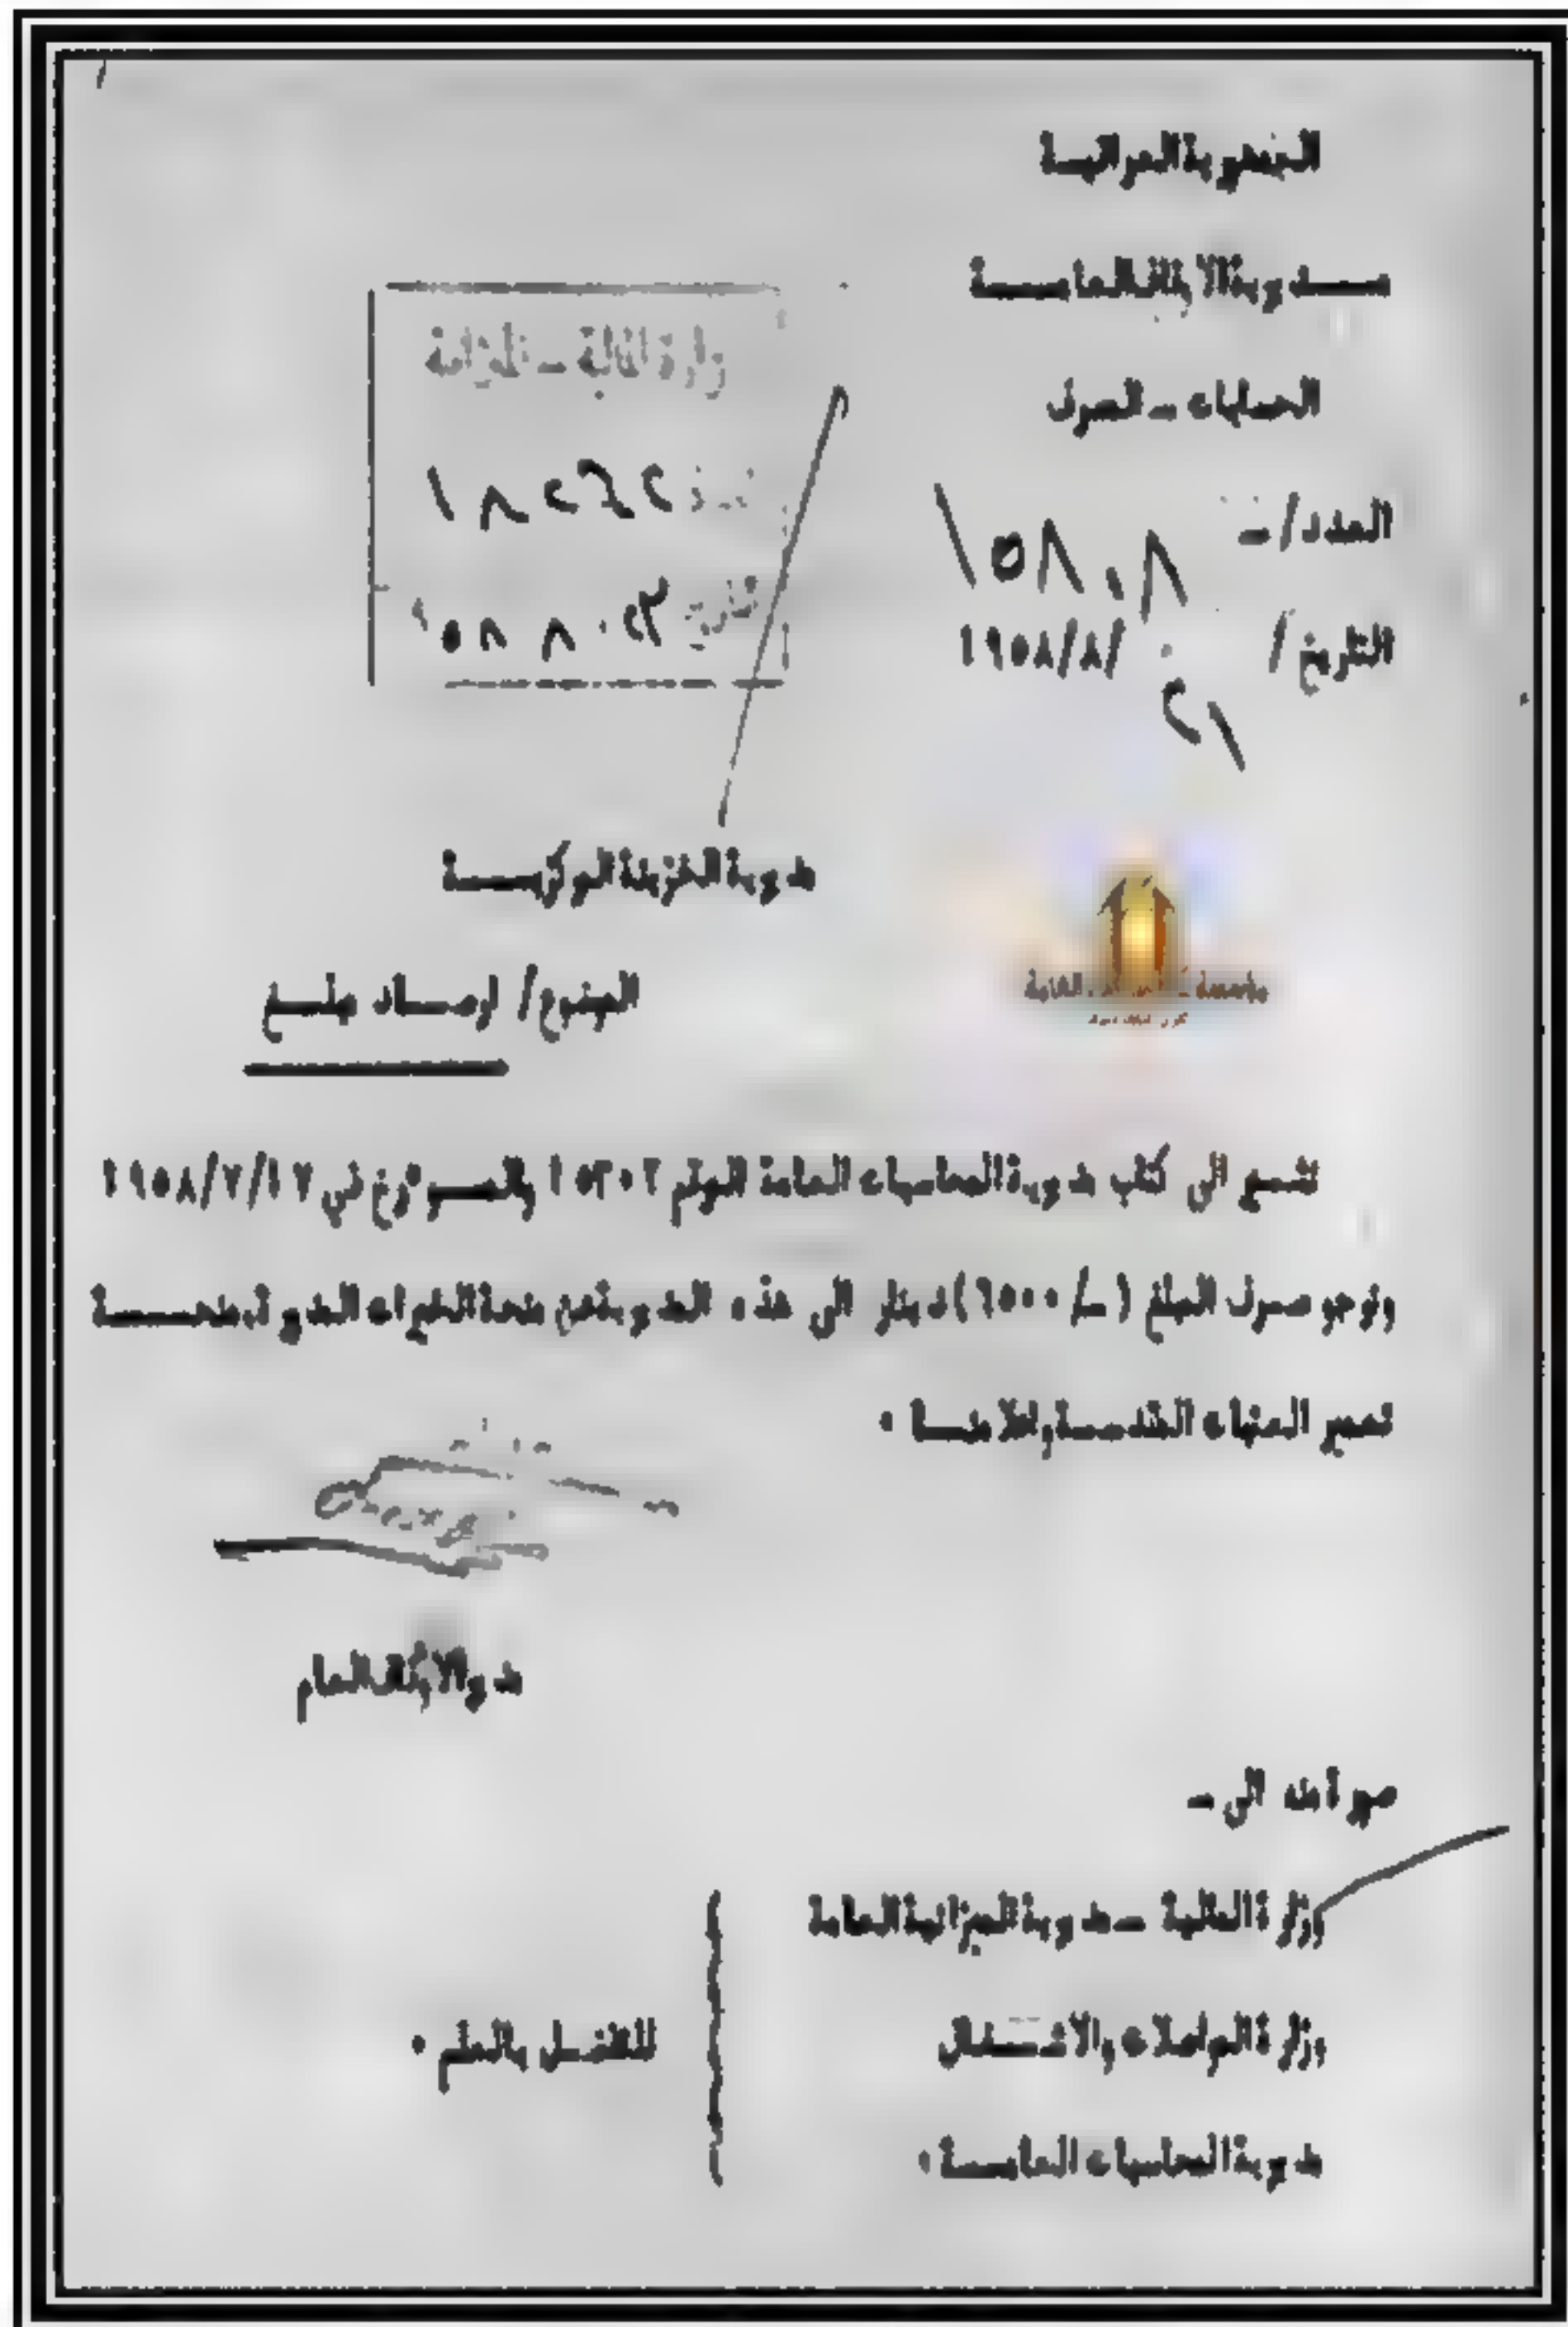 الجمهورية العراقية
مـــديرية الاوقاف العامـــة
الحسابات ـ الصرف
العدد/ ــ ١٥٨٠٨
التاريخ / ٢١ /٨/١٩٥٨
وزارة المالية ــ الميزانية
عدد ١٨٢٦٢
تاريخ
مديرية الخزينة المركزيـــة
الموضوع/ ارصــاد مبلــغ
نشــير الى كتاب مديرية المحاسبات العامة المرقم ١٥٣٠٢ والمــؤرخ في ١٧/٧/١٩٥٨
ونرجو صرف المبلغ (ــ/٦٥٠٠) دينار الى هذه المديرية عن منحة الخيرات المدورة، منحـــة
تعمير العتبات المقدسـة واصلاحهــا ٠
مدير الاوقاف العام
صورة منه الى ــ
وزارة المالية ــ مديرية الميزانية العامة
وزارة المواصلات والاشــغال
مديرية المحاسبات العامــة ٠
للتفضــل بالعلم ٠